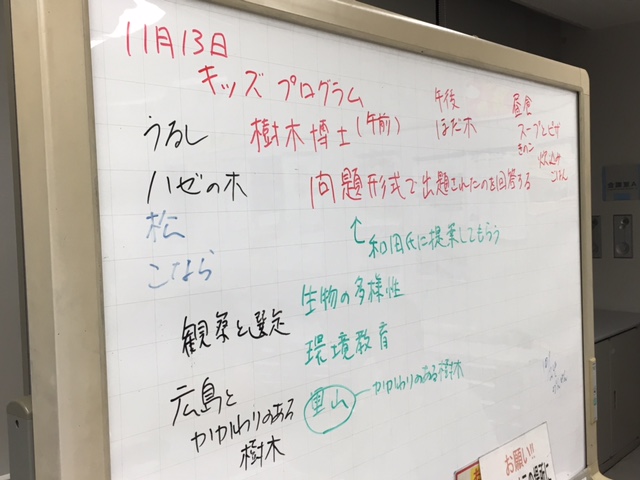 11月13日
キッズ プログラム
午後
昼食
うるし
樹木博士(午前)
ほだ木
スープとピザ
きのこ
炊込み
ごはん
ハゼの木
問題形式で出題されたのを回答する
松
↑和田氏に提案してもらう
こなら
生物の多様性
観察と選定
環境教育
里山 かかわりのある樹木
広島と
かかわりのある
樹木
お願い!!